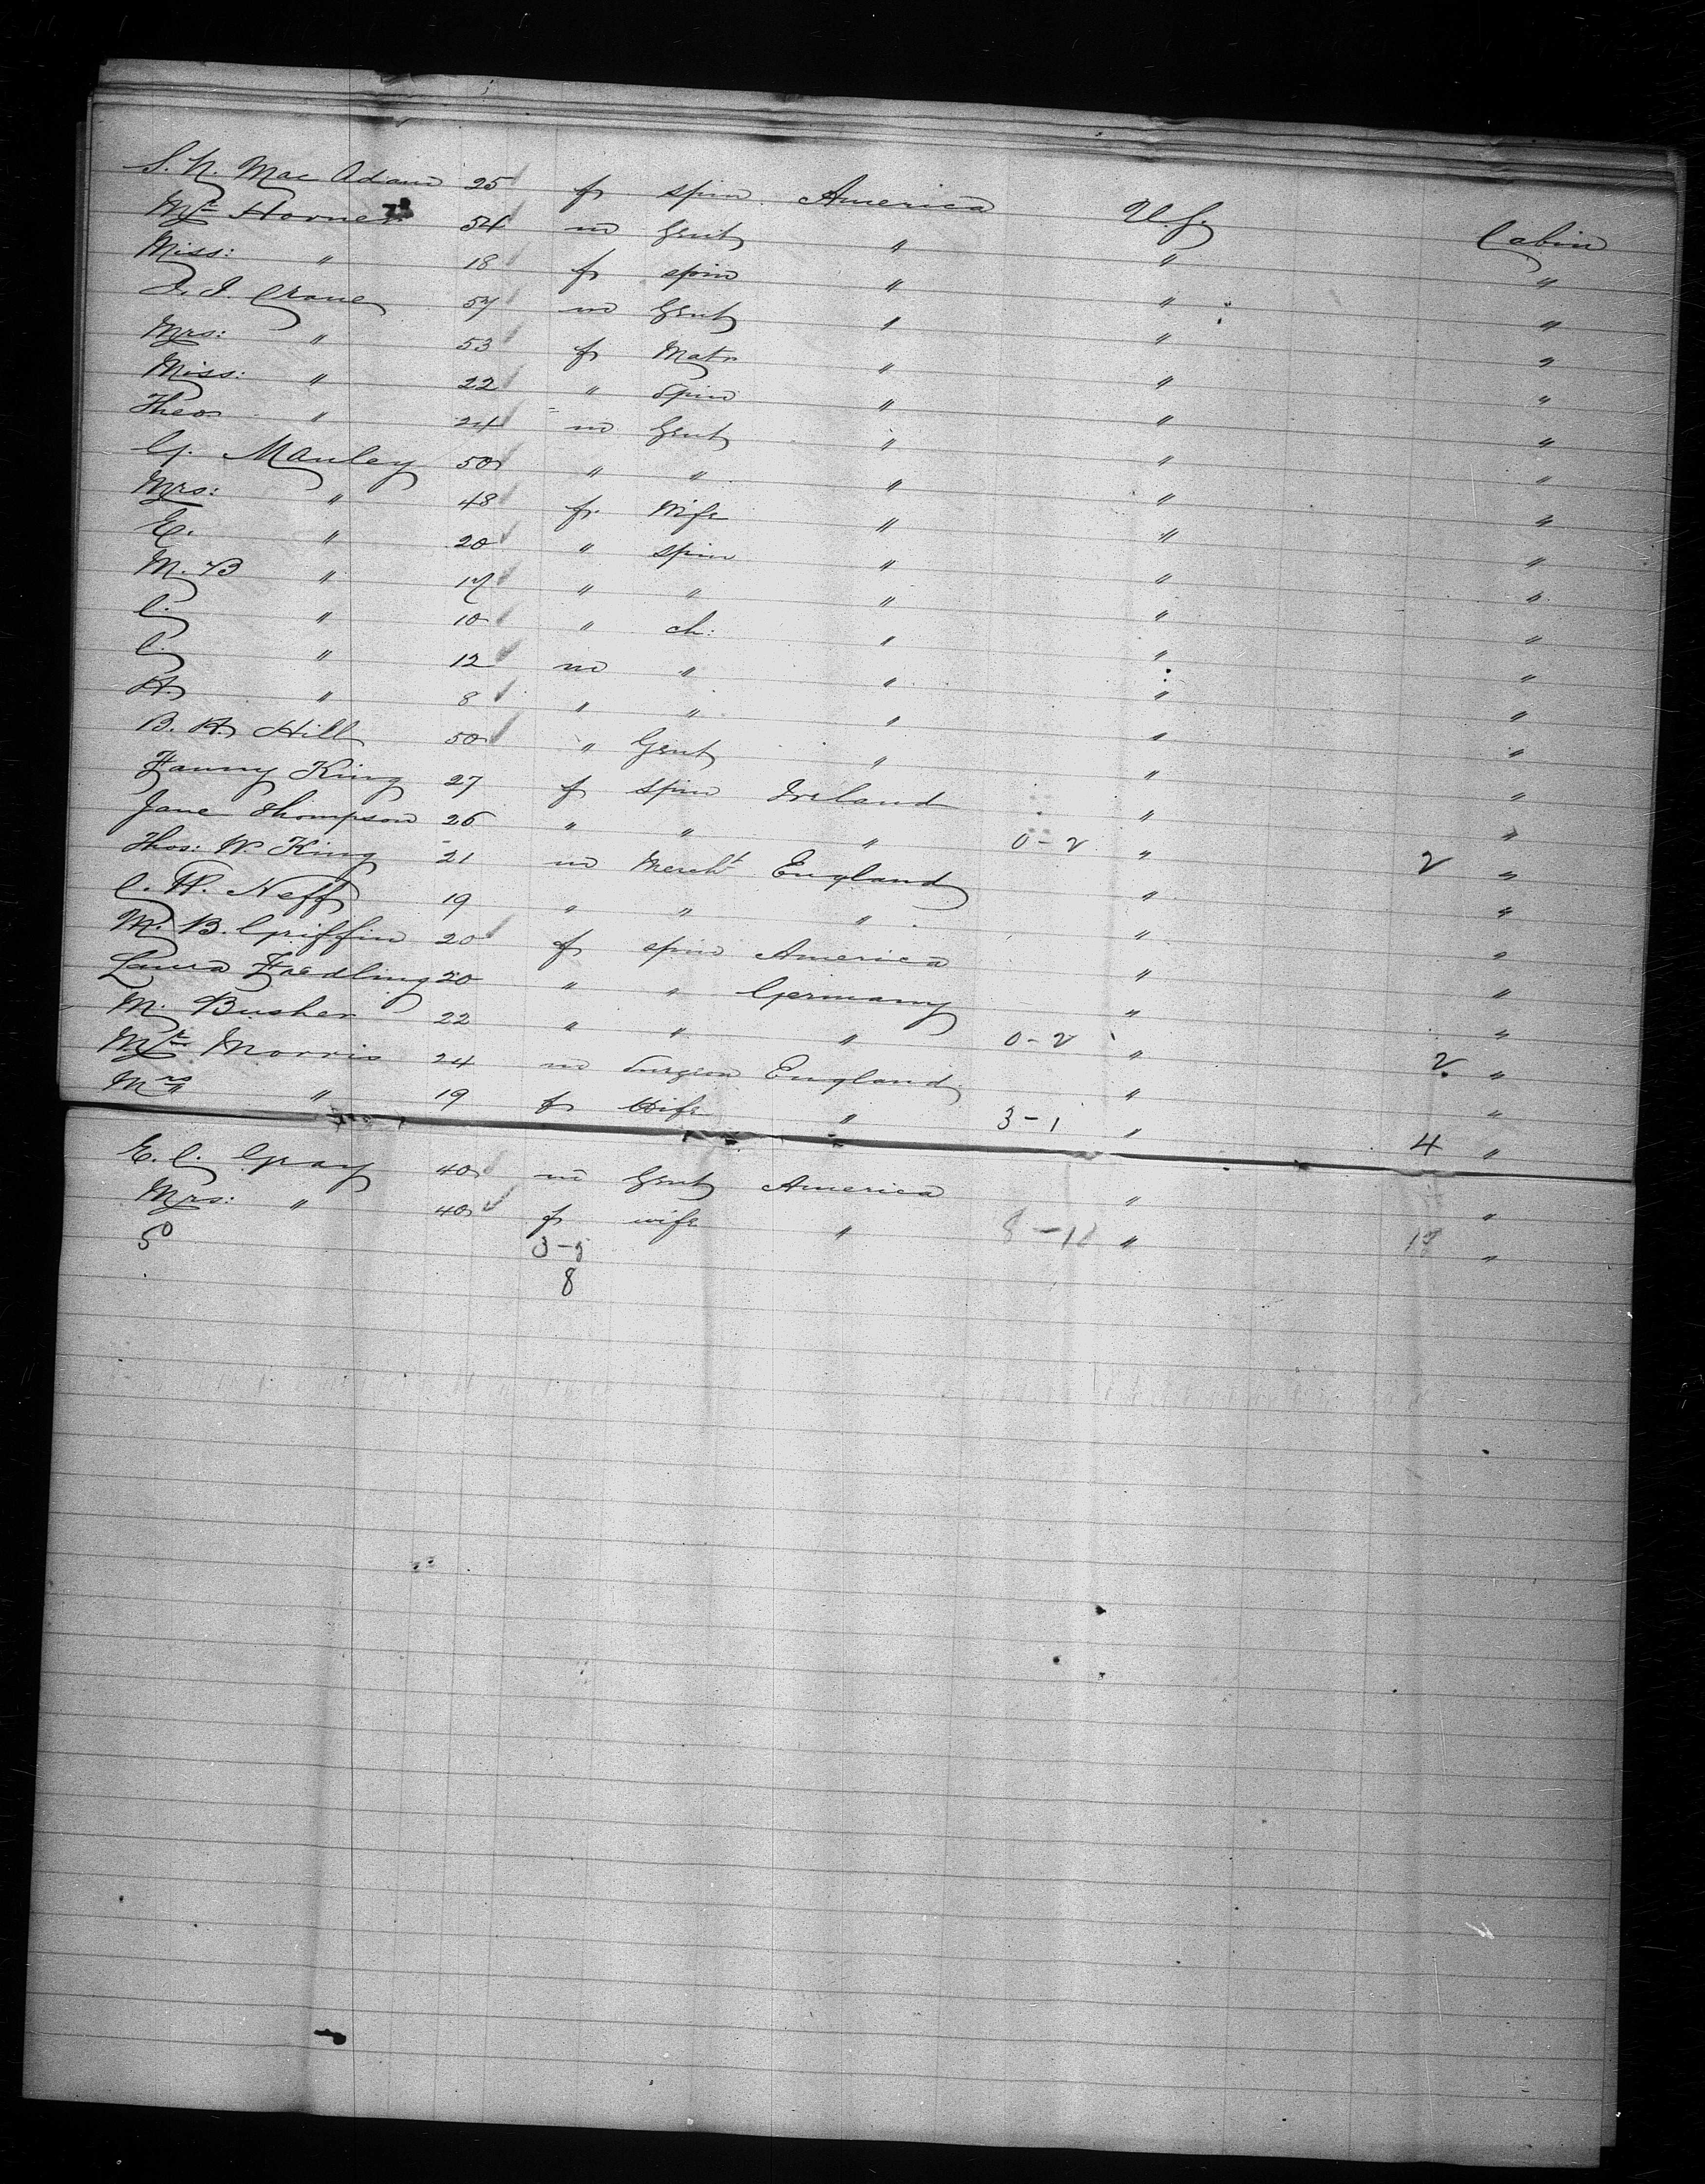 S. N. Mac Adam 25 f spin. America U.S. Cabin
Mr Horner 54 m Gent " " "
Miss: " 18 f spin " " "
J. J. Crane 57 m Gent " " "
Mrs: " 53 f Matr " " "
Miss: " 22 " Spin " " "
Theo " 24 m Gent " " "
G. Manley 50 " " " " "
Mrs: " 48 f Wife " " "
E. " 20 " spin " " "
M. B " 17 " " " " "
C. " 10 " ch: " " "
C. " 12 m " " " "
H. " 8 " " " " "
B. H. Hill 50 " Gent " " "
Fanny King 27 f Spin Ireland " "
Jane Thompson 26 " " " 0-2 " 2 "
Thos: W. King 21 m Mercht England " "
C. H. Neff 19 " " " " "
M. B. Griffin 20 f spin America " "
Laura Faedling 20 " " Germany " "
M. Busher 22 " " " 0-2 " 2 "
Mr Morris 24 m Surgeon England " "
Mrs " 19 f Wife " 3-1 " 4 "
E. C. Gray 40 m Gent America " "
Mrs: " 40 f wife " " "
50 3-5
8